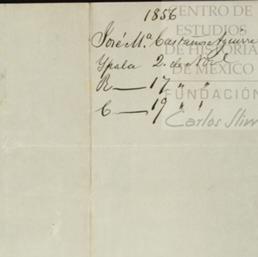 1856
José Mª. Castaños Aguirre
Ypala 2. de Nbre
R — 17 " "
C — 19 " "
CENTRO DE
ESTUDIOS
DE HISTORIA
DE MÉXICO
FUNDACIÓN
Carlos Slim